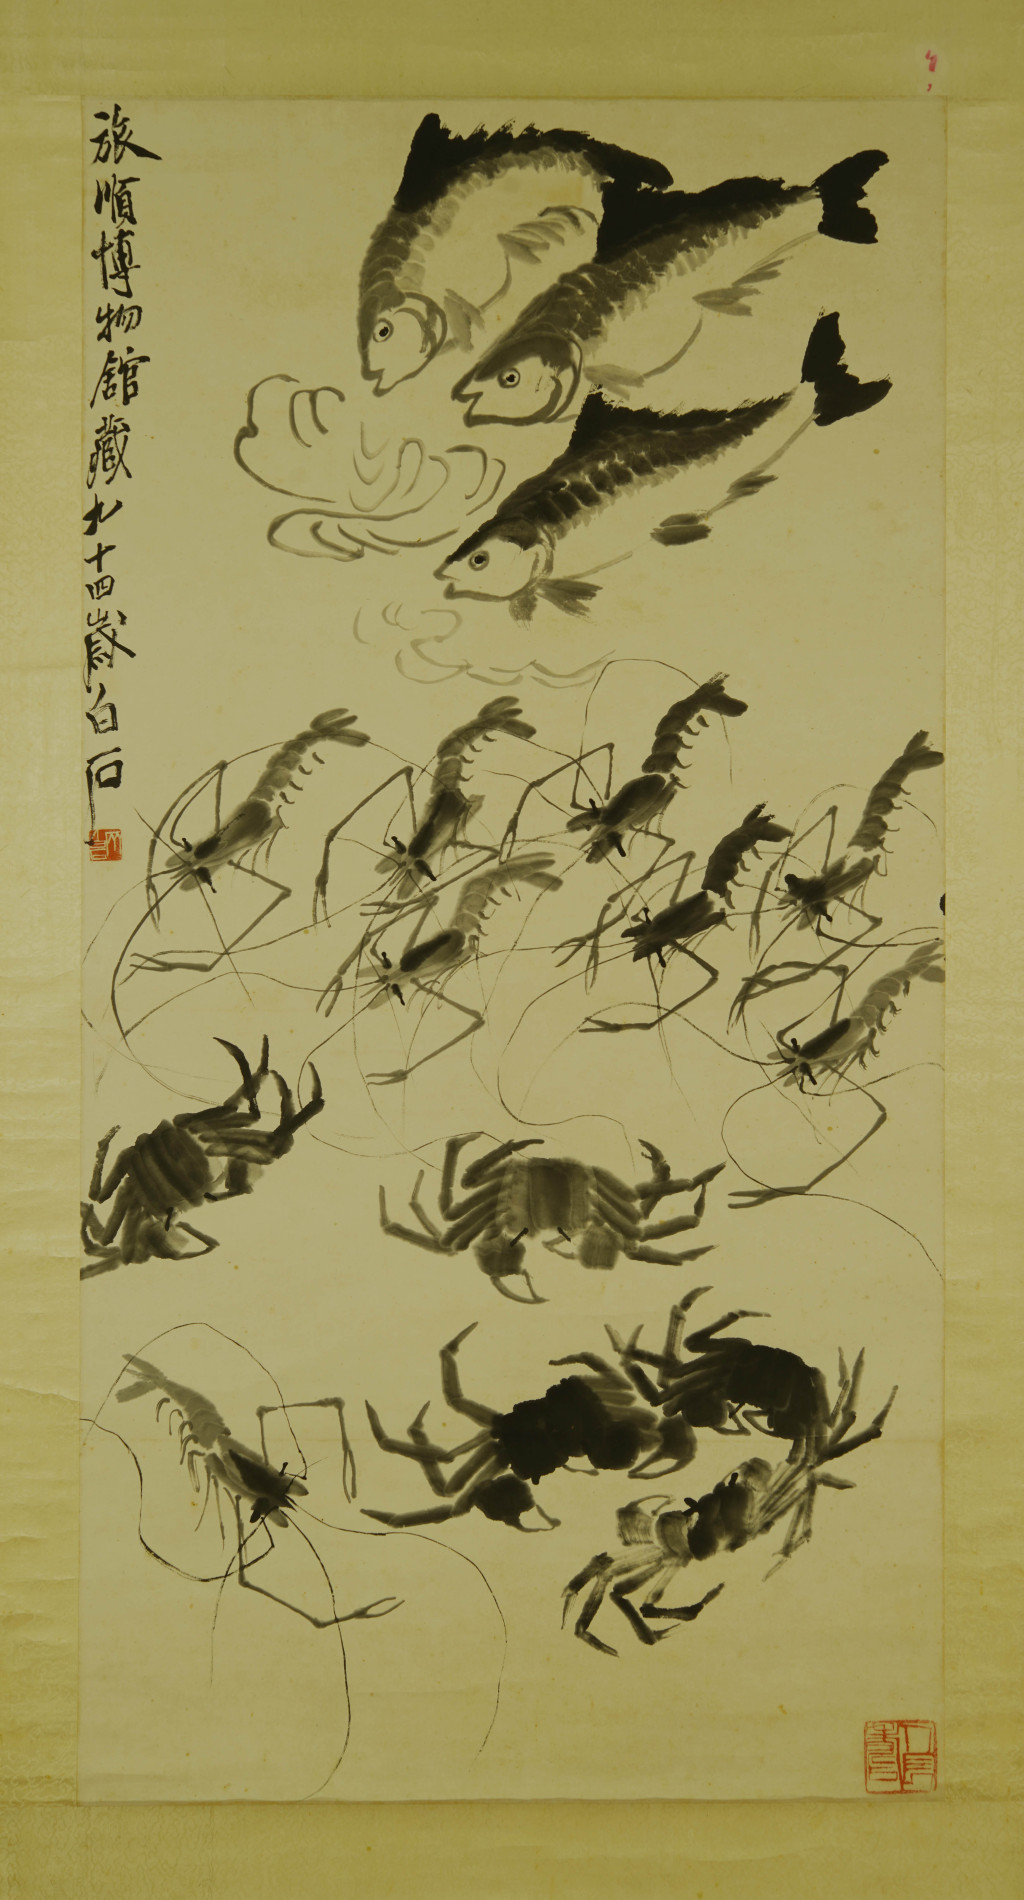 旅順博物館藏九十四歲白石